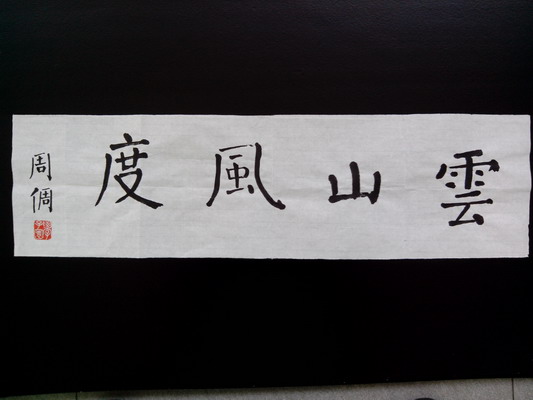 雲山風度
周倜